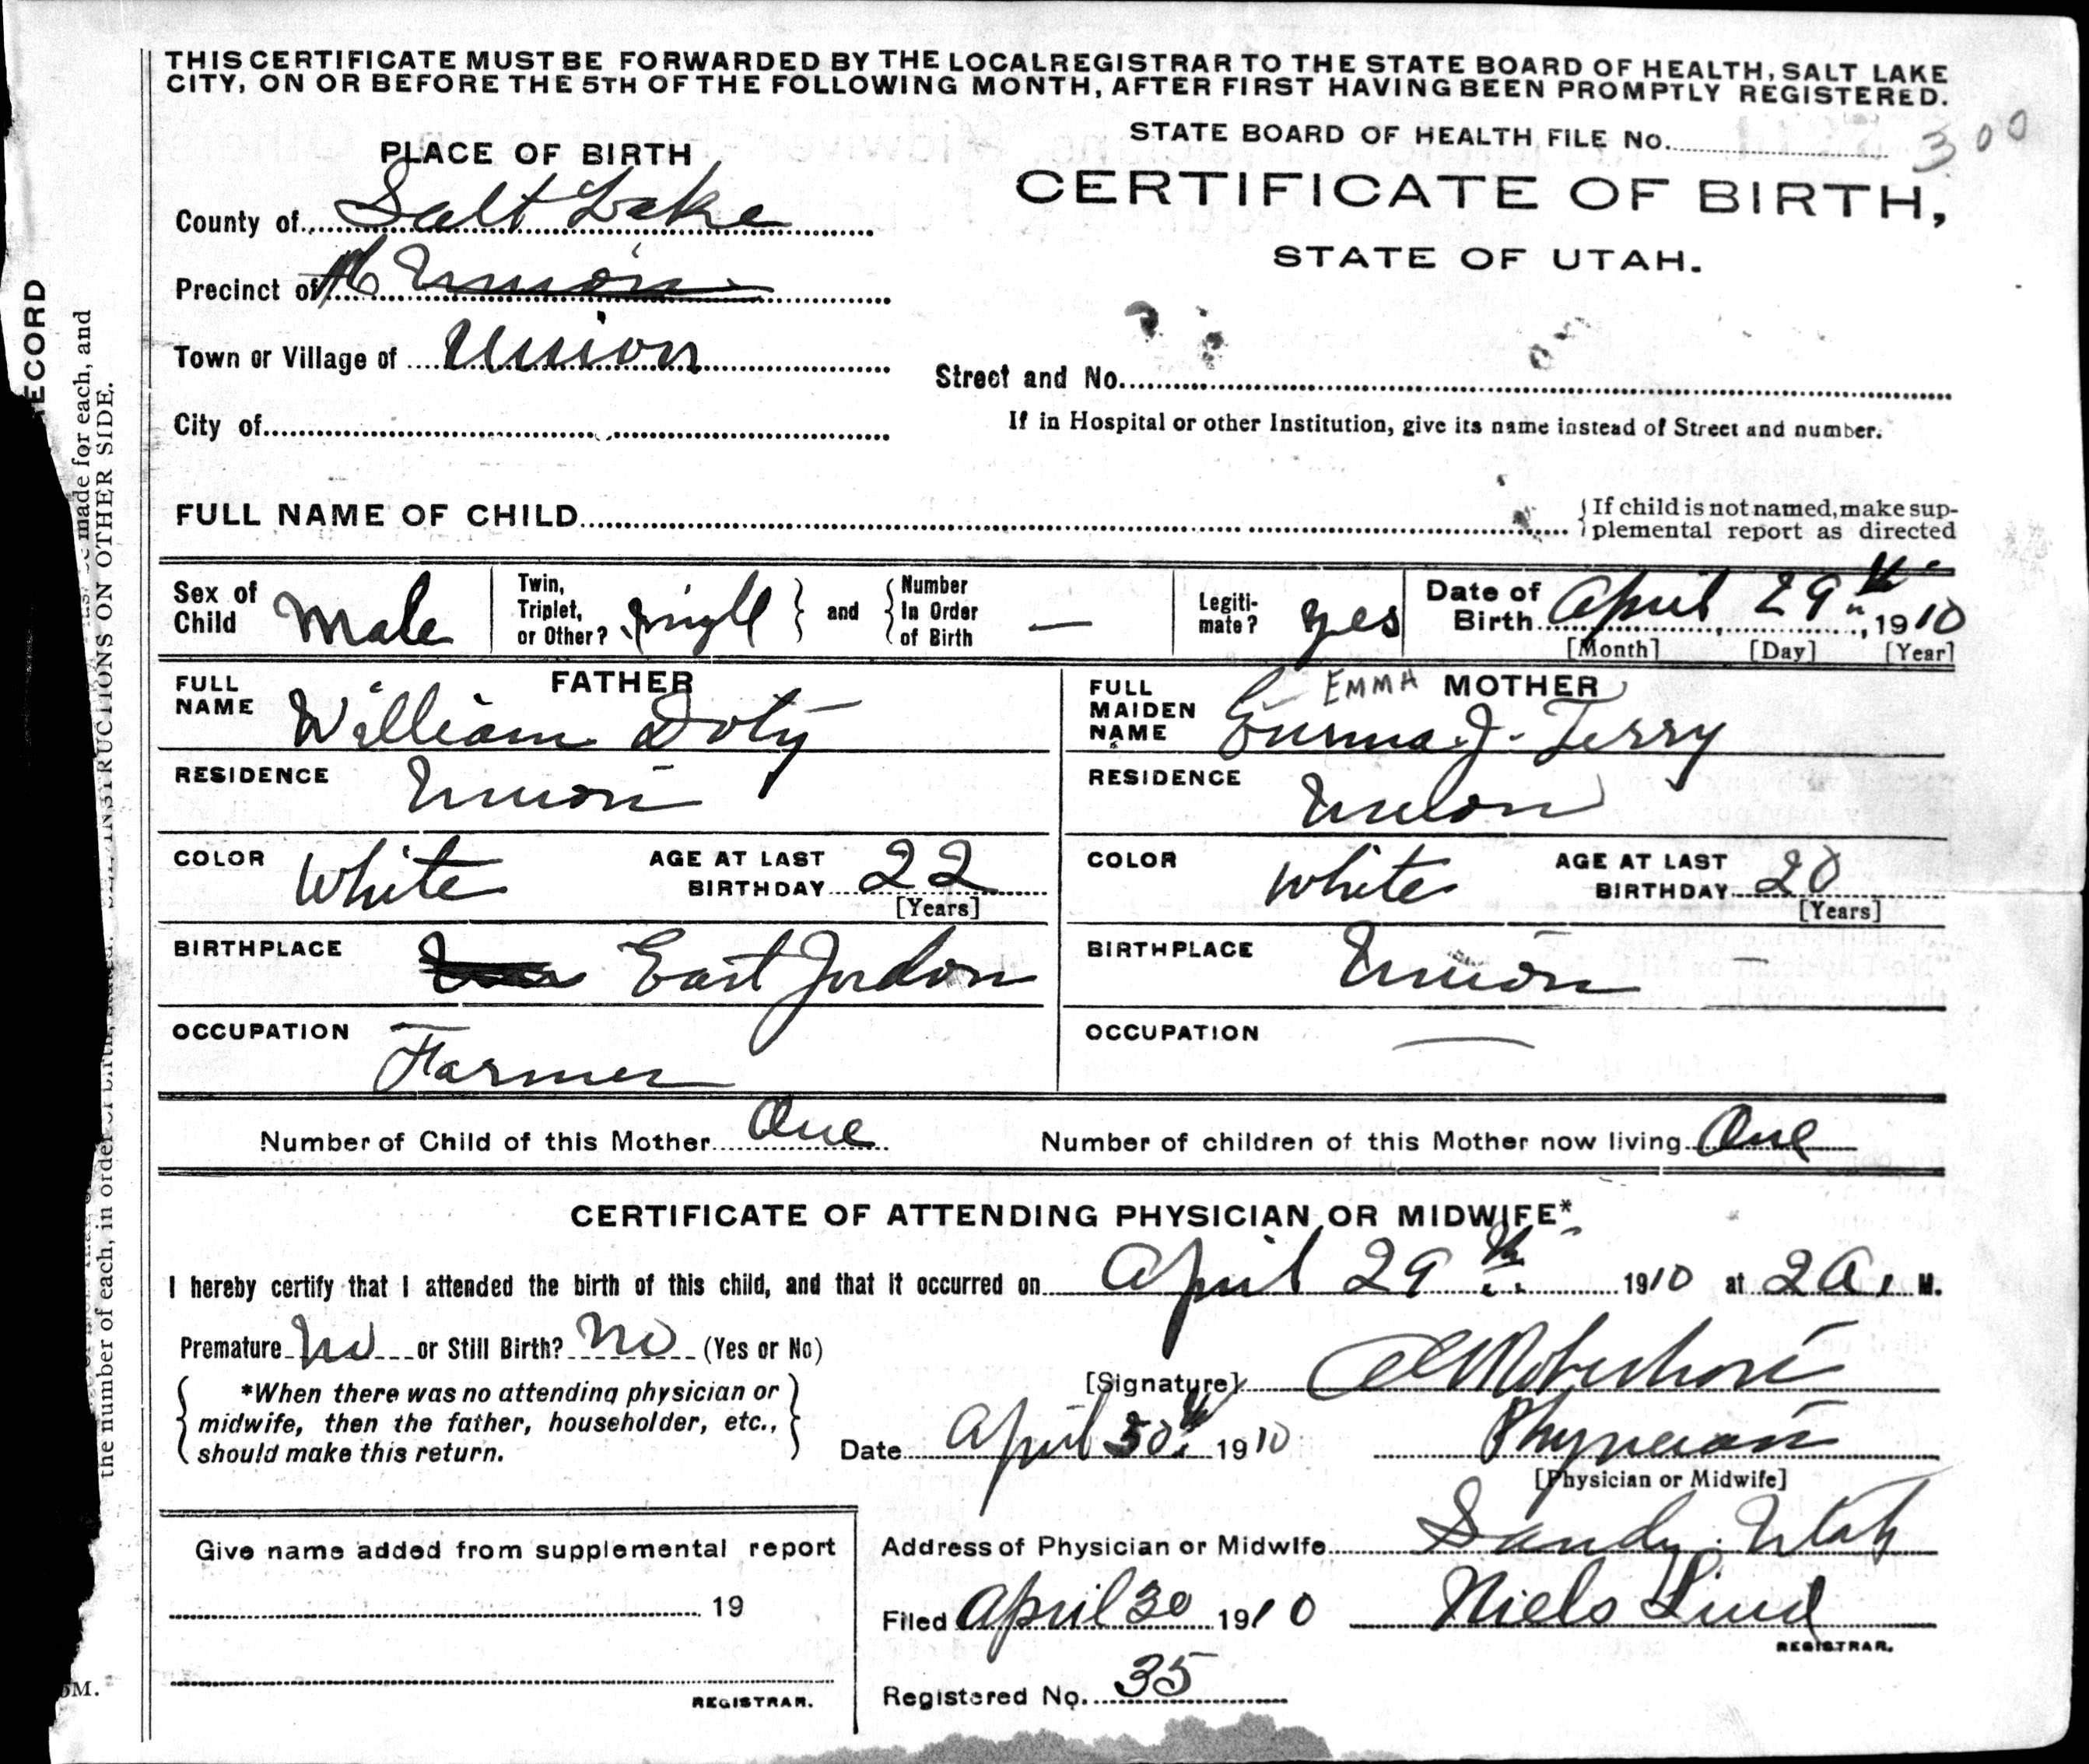 THIS CERTIFICATE MUST BE FORWARDED BY THE LOCAL REGISTRAR TO THE STATE BOARD OF HEALTH, SALT LAKE
CITY, ON OR BEFORE THE 5TH OF THE FOLLOWING MONTH, AFTER FIRST HAVING BEEN PROMPTLY REGISTERED.
STATE BOARD OF HEALTH FILE No. 300
PLACE OF BIRTH
CERTIFICATE OF BIRTH,
STATE OF UTAH.
County of Salt Lake
Precinct of Union
Town or Village of Union
Street and No.
City of
If in Hospital or other Institution, give its name instead of Street and number.
FULL NAME OF CHILD
If child is not named, make sup-
plemental report as directed
Sex of Child Male
Twin, Triplet, or Other? single and Number In Order of Birth —
Legiti-mate? yes
Date of Birth April 29th, 1910
[Month] [Day] [Year]
FATHER
FULL NAME William Doty
RESIDENCE Union
COLOR White
AGE AT LAST BIRTHDAY 22
[Years]
BIRTHPLACE East Jordon
OCCUPATION Farmer
EMMA MOTHER
FULL MAIDEN NAME Emma J. Terry
RESIDENCE Union
COLOR White
AGE AT LAST BIRTHDAY 20
[Years]
BIRTHPLACE Union
OCCUPATION —
Number of Child of this Mother One
Number of children of this Mother now living One
CERTIFICATE OF ATTENDING PHYSICIAN OR MIDWIFE*
I hereby certify that I attended the birth of this child, and that it occurred on April 29th 1910 at 2 A. M.
Premature No or Still Birth? No (Yes or No)
*When there was no attending physician or
midwife, then the father, householder, etc.,
should make this return.
[Signature] Robertson
Date April 30th 1910
Physician
[Physician or Midwife]
Give name added from supplemental report
19
REGISTRAR.
Address of Physician or Midwife Sandy Utah
Filed April 30 1910 Niels Lind
REGISTRAR.
Registered No. 35
ECORD
made for each, and
the number of each, in order of birth, stated. SEE INSTRUCTIONS ON OTHER SIDE.